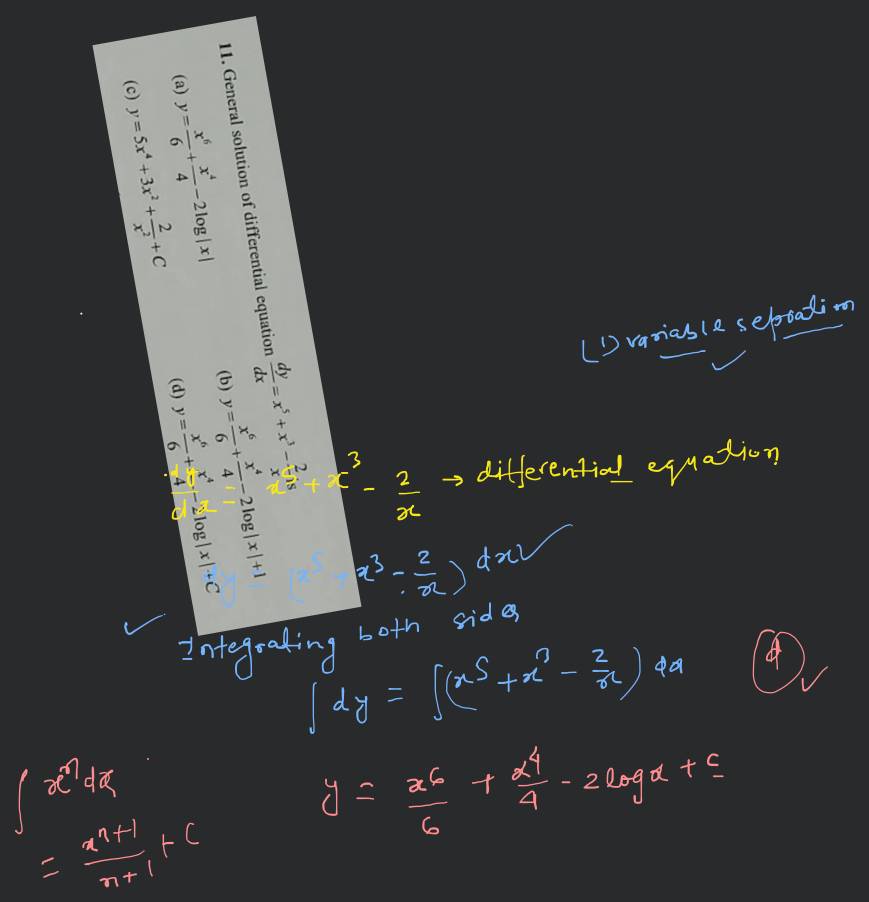 11. General solution of differential equation dy/dx = x⁵ + x³ − 2/x is
(a) y = x⁶/6 + x⁴/4 − 2log|x|
(b) y = x⁶/6 + x⁴/4 − 2log|x|+1
(c) y = 5x⁴ + 3x² + 2/x² + C
(d) y = x⁶/6 + x⁴/4 − 2log|x|+C
(1) variable sepration
dy/dx = x⁵ + x³ − 2/x → differential equation
dy = (x⁵ + x³ − 2/x) dx
Integrating both sides
∫ dy = ∫(x⁵ + x³ − 2/x) dx
d
y = x⁶/6 + x⁴/4 − 2logx + c
∫ xⁿ dx
= xⁿ⁺¹/n+1 + C